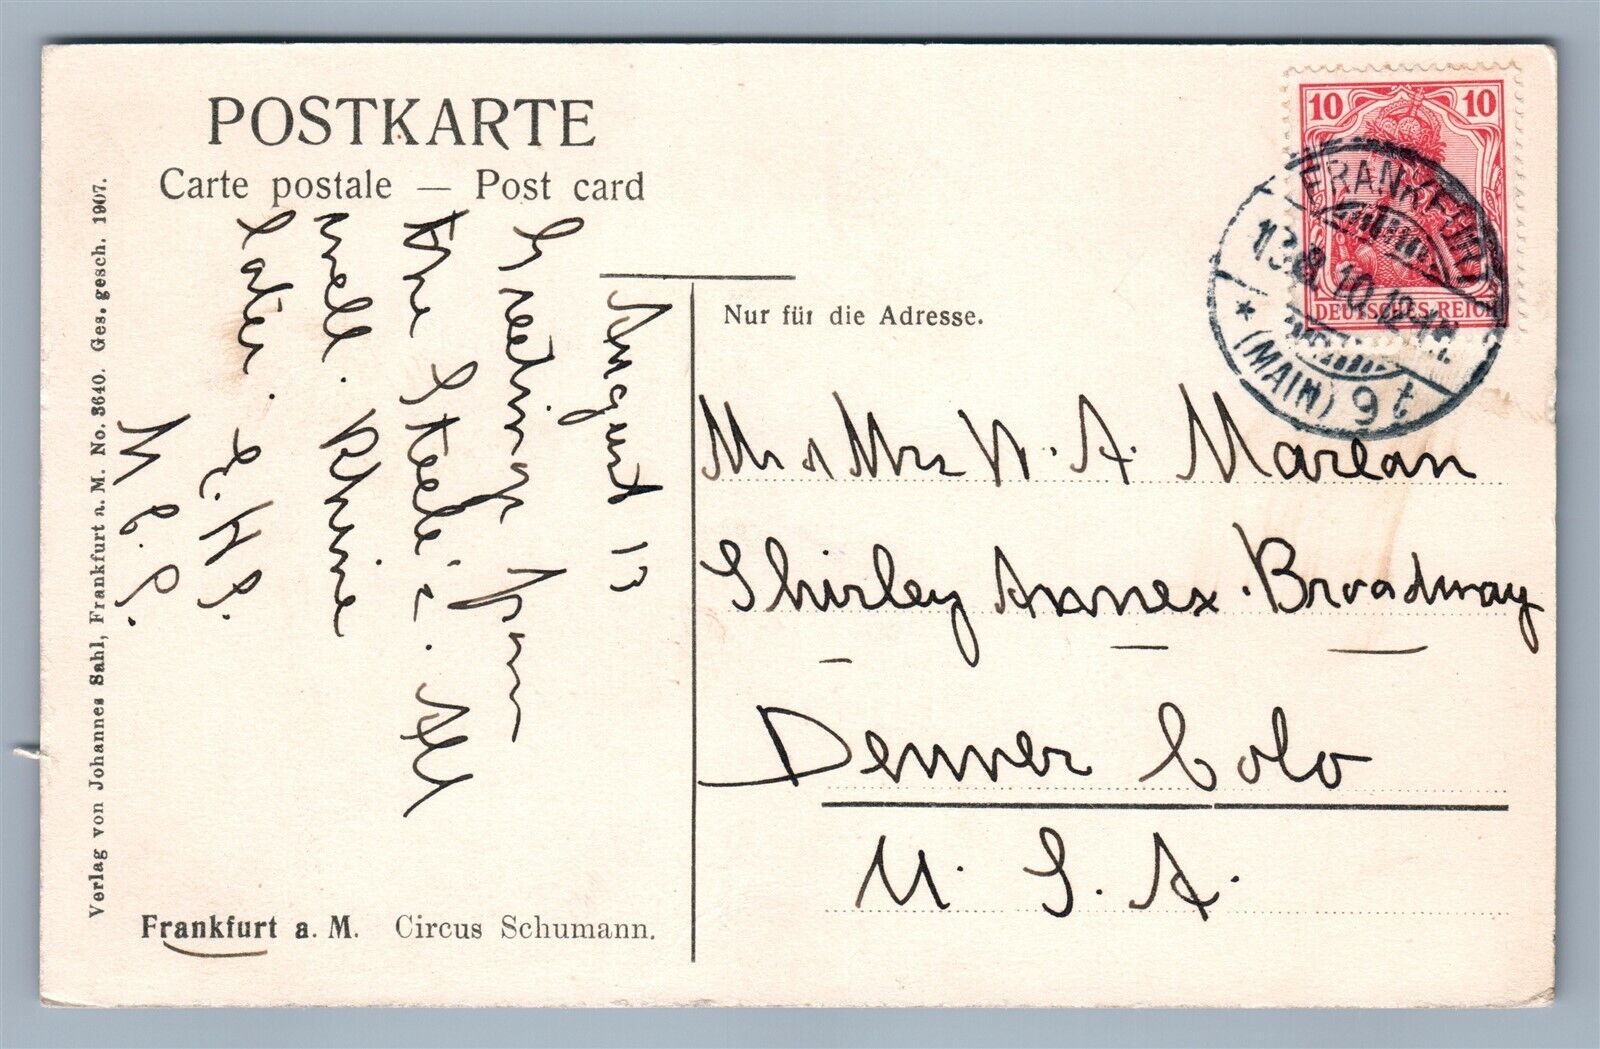 POSTKARTE
Carte postale — Post card
August 13
Greetings from
the Steele's. All
well. Rhine
later. E. H. S.
M. C. S.
Verlag von Johannes Sahl, Frankfurt a. M. No. 3640. Ges. gesch. 1907.
Frankfurt a. M. Circus Schumann.
10 10
DEUTSCHES REICH
FRANKFURT
13.8.10.12-1N.
* (MAIN) 9t
Nur für die Adresse.
Mr & Mrs W. A. Marean
Shirley Annex. Broadway
Denver Colo
U. S. A.